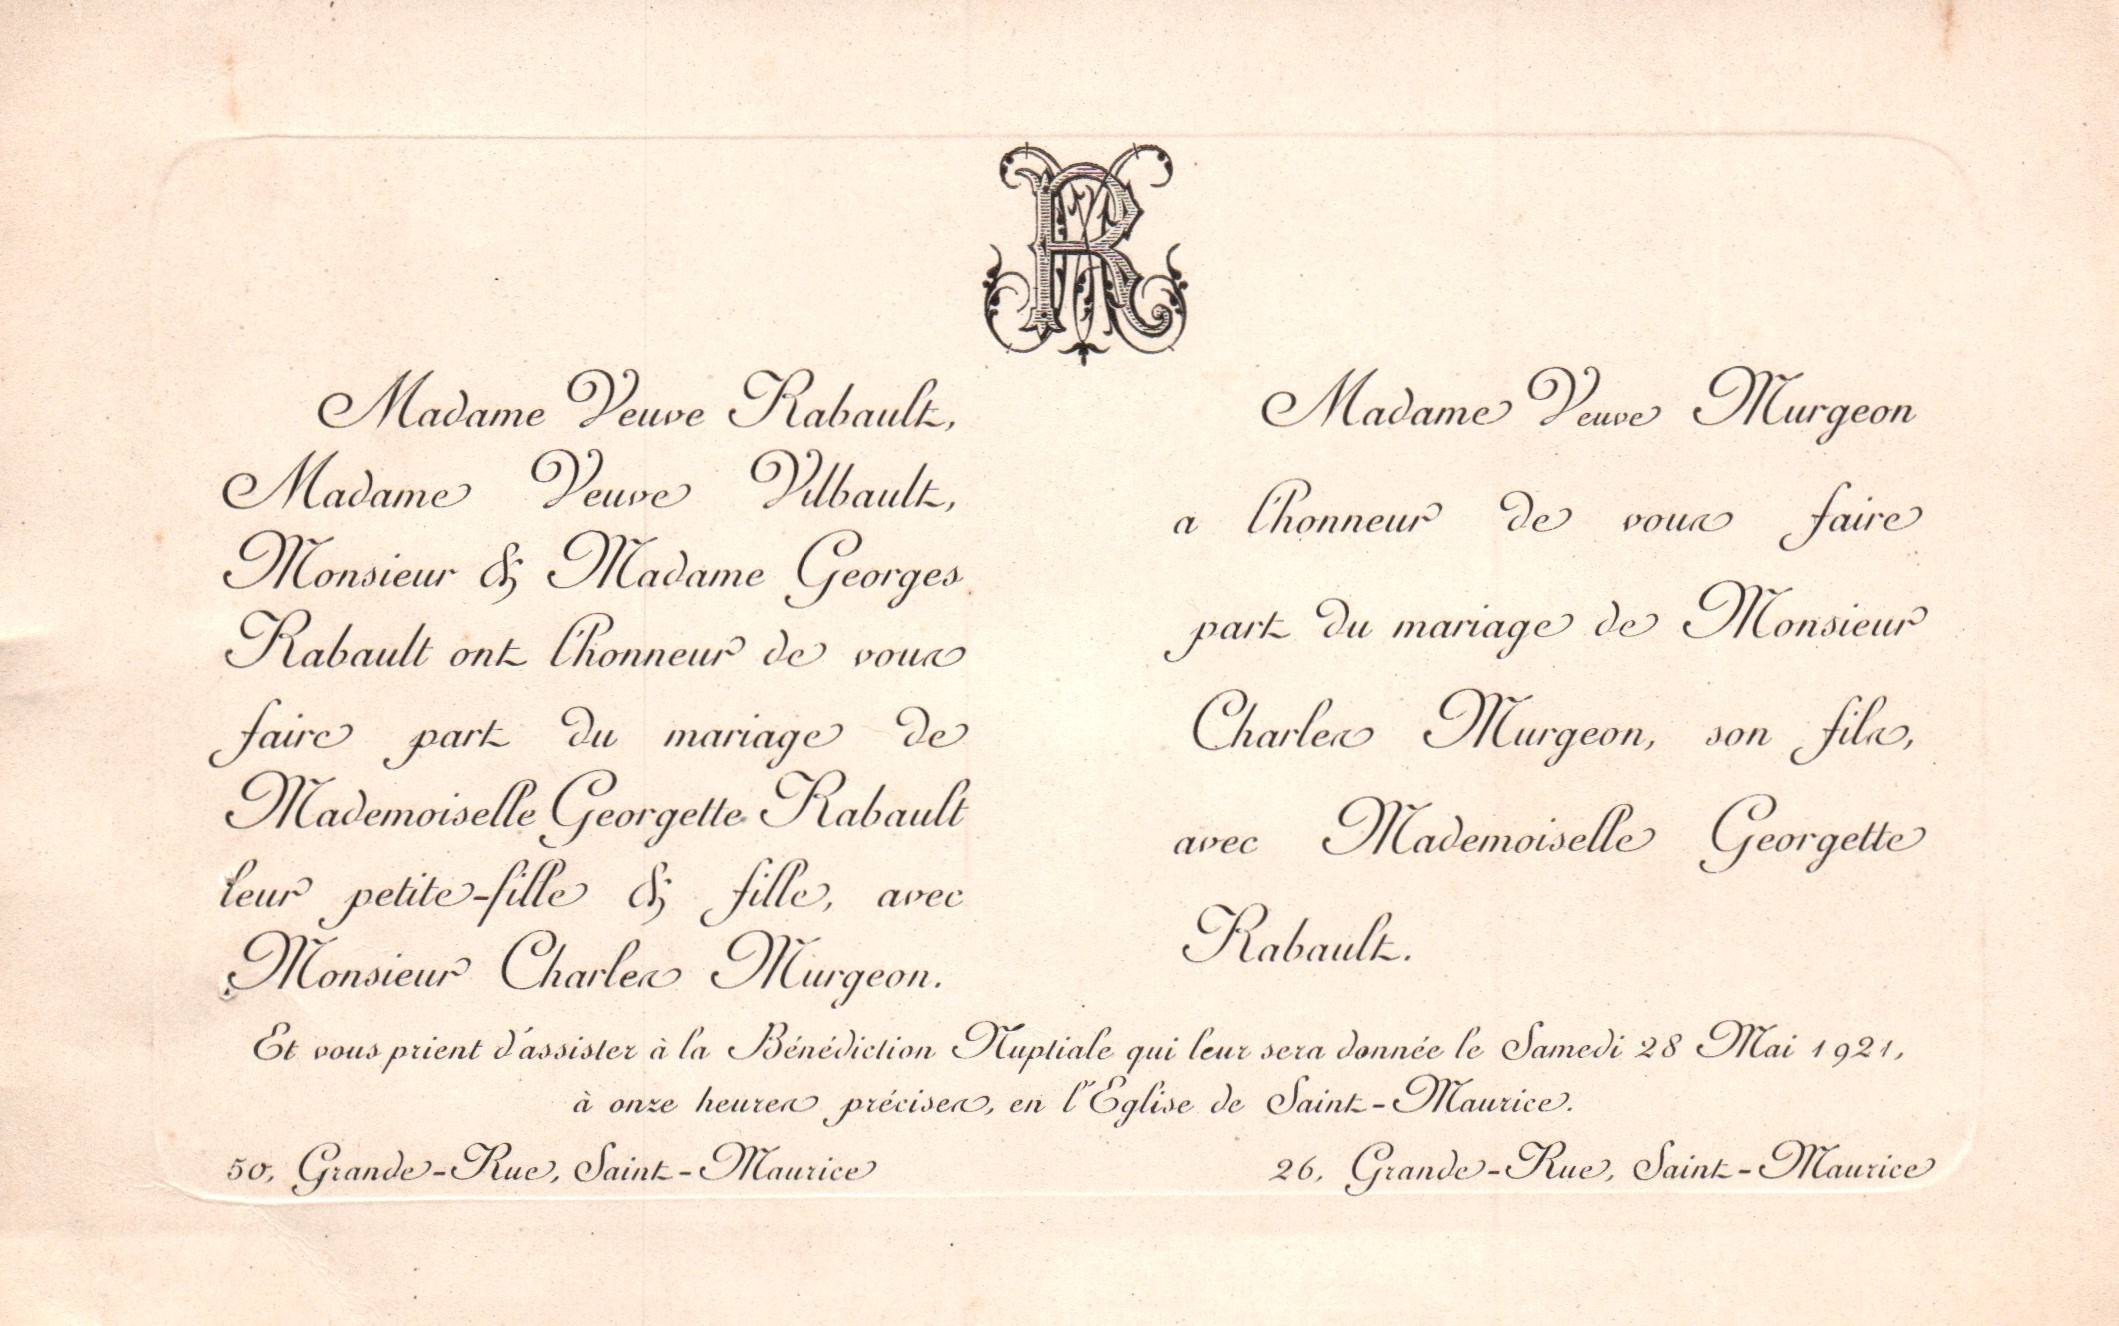 Madame Veuve Rabault,
Madame Veuve Vilbault,
Monsieur & Madame Georges
Rabault ont l'honneur de vous
faire part du mariage de
Mademoiselle Georgette Rabault
leur petite-fille & fille, avec
Monsieur Charles Murgeon.
Madame Veuve Murgeon
a l'honneur de vous faire
part du mariage de Monsieur
Charles Murgeon, son fils,
avec Mademoiselle Georgette
Rabault.
Et vous prient d'assister à la Bénédiction Nuptiale qui leur sera donnée le Samedi 28 Mai 1921,
à onze heures précises, en l'Eglise de Saint-Maurice.
50, Grande-Rue, Saint-Maurice
26, Grande-Rue, Saint-Maurice